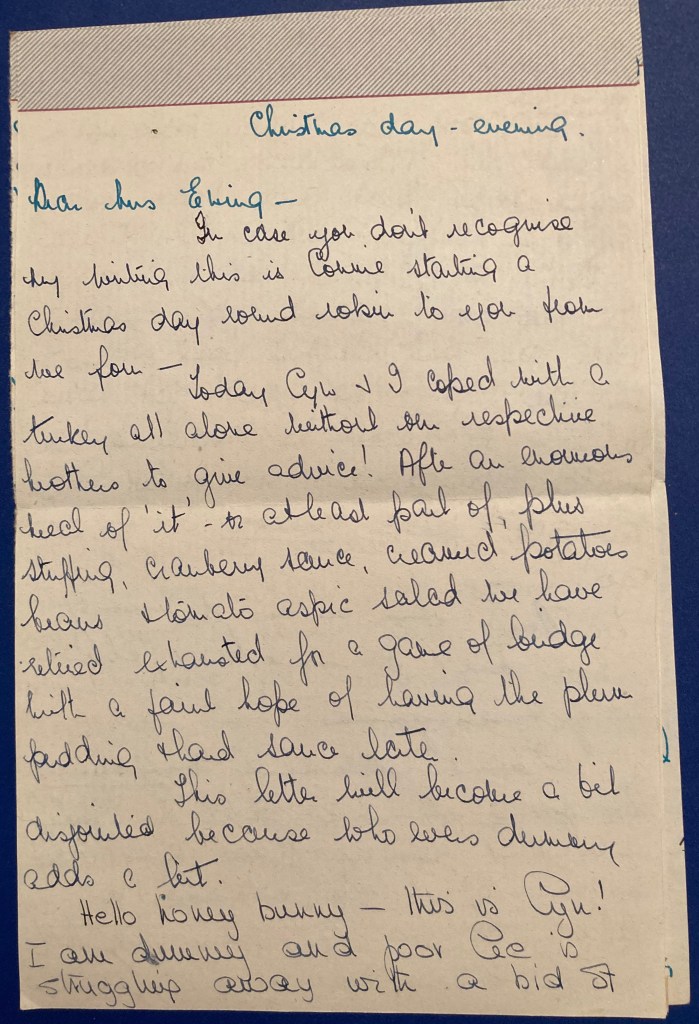 Christmas day - evening.
Dear Mrs Ewing -
In case you don't recognise
my writing this is Connie starting a
Christmas day round robin to you from
we four - Today Cyn & I coped with a
turkey all alone without our respective
mothers to give advice! After an enormous
meal of 'it' - or at least part of, plus
stuffing, cranberry sauce, creamed potatoes
beans & tomato aspic salad we have
retired exhausted for a game of bridge
with a faint hope of having the plum
pudding & hard sauce later.
This letter will become a bit
disjointed because who evers dummy
adds a bit.
Hello honey bunny - this is Cyn!
I am dummy and poor Cec is
struggling away with a bid of